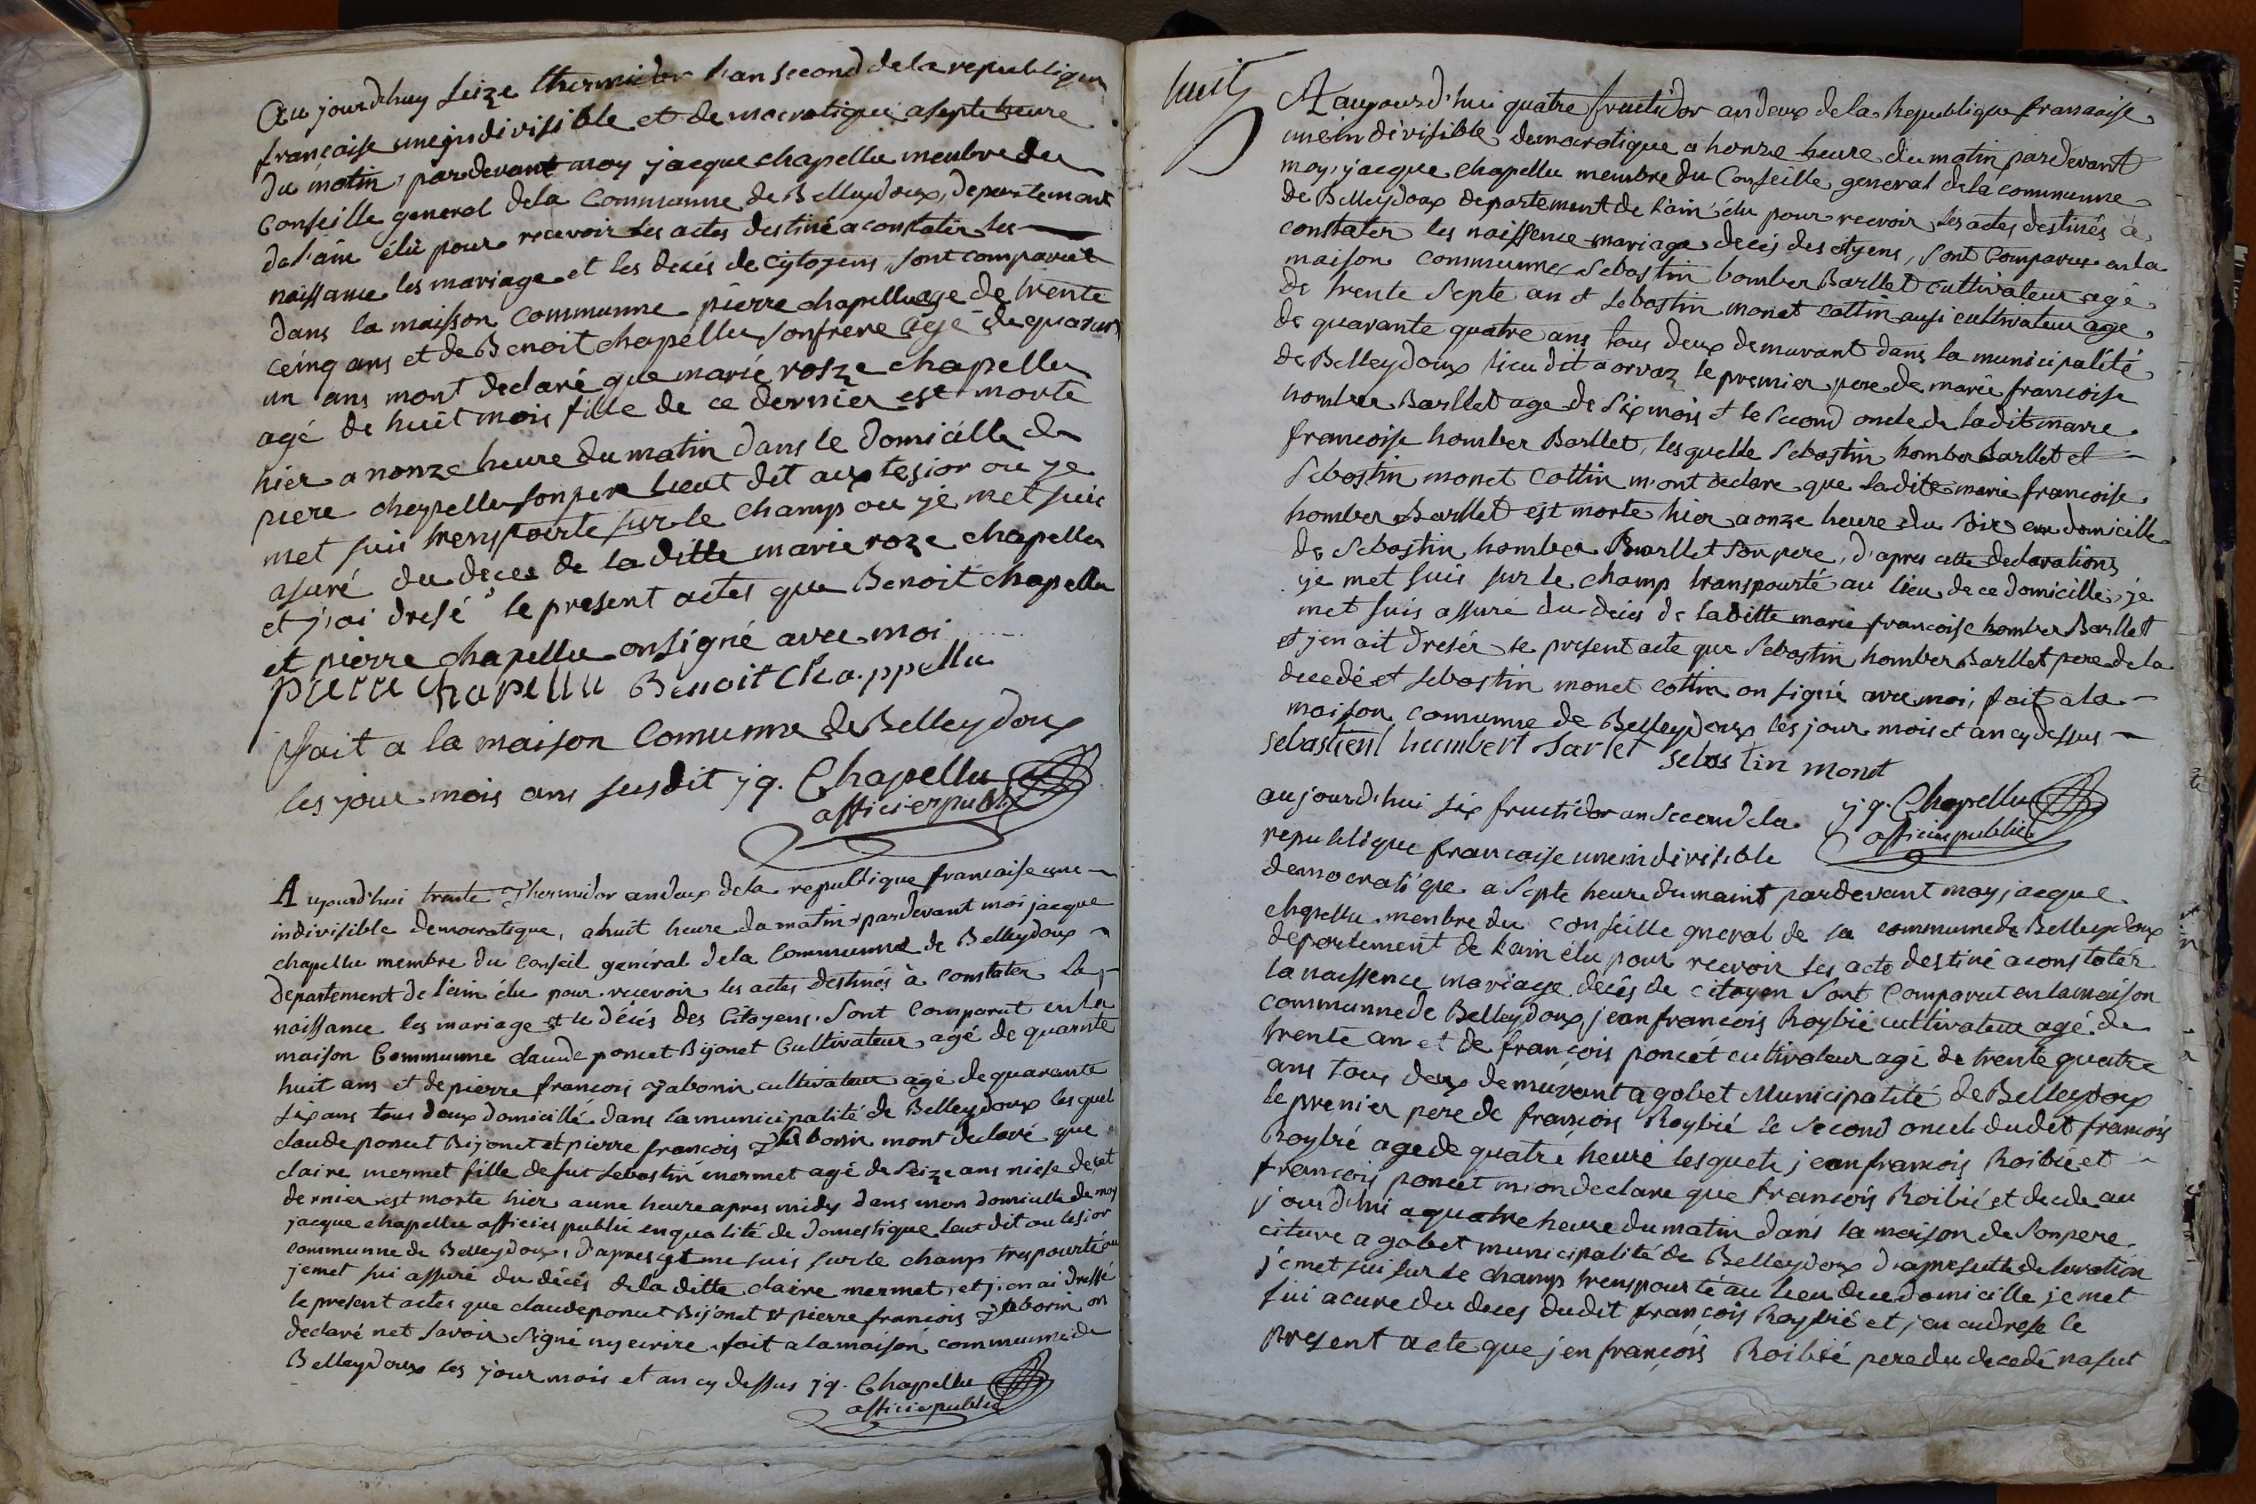 Aujourdhuy seize thermidor l'an second de la republique
francaise une indivisible et democratique a septe heure
du matin, pardevant moy jacque chapellu menbre du
Conseille general dela Commune de Belleydoux, departemant
del'ain élu pour recevoir les actes destiné a constater les
naissance les mariage et les decés de Cytoyens, sont comparut
dans la maison Communne pierre chapellu age de trente
ceinq ans et de Benoit chapellu sonfrere agé de quarant
un ans mont declaré que marie rosze chapellu
agé de huit mois fille de ce dernier est morte
hier a nonze heure du matin dans le domicille de
piere chapellu sonper lieut dit aux tesior ou je
met suis trenspourté sur le champ ou je met suis
asuré du deces de la ditte marie roze chapellu
et j'ai dresé le present actes que Benoit chapellu
et pierre chapellu onsigné avec moi
pierre chapellu Benoit Chappellu
fait a la maison Comunne de Belleydoux
les jour mois ans susdit jq. Chapellu
officier publi
Aujourd'hui trente Thermidor an deux dela republique francaise une
indivisible democratique, a huit heure du matin pardevant moi jacque
chapellu membre du Conseil genéral dela Communne de Belleydoux
departement de l'ain élu pour recevoir les actes destinés à constater la
naissance les mariage et le décés des Citoyens. Sont Comparut en la
maison Communne claude poncet Bijonet Cultivateur, agé de quarante
huit ans et de pierre francois Jabonin cultivateur agé de quarante
six ans tous deux domicillé dans la municipalité de Belleydoux lesquel
claude poncet Bijonet et pierre francois Jabonin mont declaré que
claire mermet fille de fut sebastin mermet agé de seize ans niese de cet
dernier est morte hier a une heure apres midy dans mon domicille de moy
jacque chapellu officier public en qualité de domestique leut dit au tesior
communne de Belleydoux, d'apres çe me suis sur le champ trespourté ou
je met sui assuré du décés dela ditte claire mermet, et j'en ai dressé
le present actes que claude poncet Bijonet et pierre francois Jabonin on
declaré net savoir signé ny ecrire. fait a la maison communne de
Belleydoux les jour mois et an cy dessus jq. Chapellu
officier public
huit
A aujourd'hui quatre fructidor an deux de la Republique francaise
une indévisible democratique a honze heure du matin pardevant
moy, jacque chapellu membre du Conseille general dela communne
de Belleydoux departement de l'ain élu pour recevoir les actes destinés à
constater les naissence mariage decés des cityens, sont Comparus en la
maison communne Sebastin homber Barllet cultivateur agé
de trente septe an et Sebastin monet cottin ausi cultivateur age
de quarante quatre ans tous deux demurant dans la municipalité
de Belleydoux lieu dit a orvaz le premier pere de marie francoise
homber Barllet age de six mois et le second oncle de ladit marie
francoise homber Barllet, lesquelle Sebastin homber Barllet et
Sebastin monet Cottin m'ont declare que ladite marie francoise
homber Barllet est morte hier a onze heure du soir en domicille
de Sebastin homber Barllet son pere, d'apres cette declarations
je met suis sur le champ transpourté au lieu de ce domicille, je
met suis assuré du décés de laditte marie francoise homber Barllet
et jen ait dresér le present acte que Sebastin homber Barllet pere dela
decedé et sebastin monet cottin on signé avec moi, fait a la
maison comunne de Belleydoux les jour mois et an cy dessus
Sebastient humbert Barlet Sebas tin monet
jq. Chapellu
officier public
aujourd'hui six fructidor an second la
republique francaise une indivisible
democratique a septe heure du maint pardevant moy, jacque
chapellu menbre du conseille gneral de la commune de Belleydoux
departement de l'ain élu pour recevoir les acte destiné a constatér
la naissence mariage decés de citoyen sont Comparut en la maison
communne de Belleydoux, jean francois Roybié cultivateur agé de
trente an et de francois poncet cultivateur agé de trente quatre
ans tous deux demurant a gobet Municipalité de Belleydoux
le premier pere de francois Roybié le second oncle dudit francois
Roybié age de quatre heure lesquele jean francois Roibié et
francois poncet m'on declare que francois Roibié et decede au
jourd'hui a quatre heure du matin dans la maison de son pere
citure a gobet municipalité de Belleydoux d'apres cette delaration
je met sui sur le champ trenspourte au lieu du domicille je met
sui acure du deces dudit francois Roybié et j'en ai drese le
present acte que jen francois Roibié pere du decedé na sut